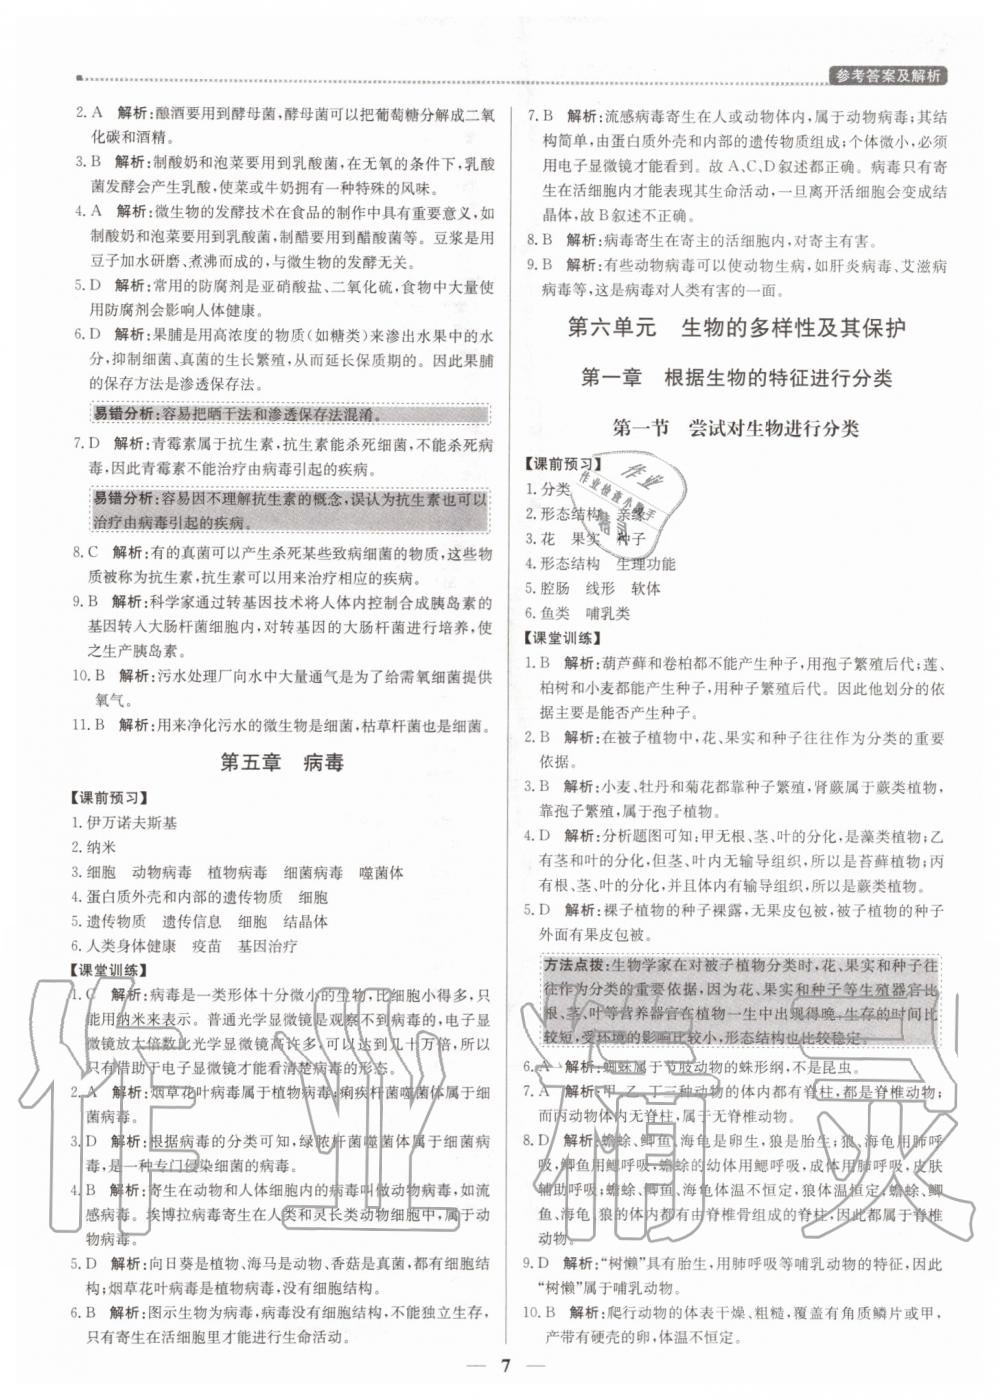 参考答案及解析
2. A 解析:酿酒要用到酵母菌,酵母菌可以把葡萄糖分解成二氧
化碳和酒精。
3. B 解析:制酸奶和泡菜要用到乳酸菌,在无氧的条件下,乳酸
菌发酵会产生乳酸,使菜或牛奶拥有一种特殊的风味。
4. A 解析:微生物的发酵技术在食品的制作中具有重要意义,如
制酸奶和泡菜要用到乳酸菌,制醋要用到醋酸菌等。豆浆是用
豆子加水研磨、煮沸而成的,与微生物的发酵无关。
5. D 解析:常用的防腐剂是亚硝酸盐、二氧化硫,食物中大量使
用防腐剂会影响人体健康。
6. D 解析:果脯是用高浓度的物质(如糖类)来渗出水果中的水
分,抑制细菌、真菌的生长繁殖,从而延长保质期的。因此果脯
的保存方法是渗透保存法。
易错分析:容易把晒干法和渗透保存法混淆。
7. D 解析:青霉素属于抗生素,抗生素能杀死细菌,不能杀死病
毒,因此青霉素不能治疗由病毒引起的疾病。
易错分析:容易因不理解抗生素的概念,误认为抗生素也可以
治疗由病毒引起的疾病。
8. C 解析:有的真菌可以产生杀死某些致病细菌的物质,这些物
质被称为抗生素,抗生素可以用来治疗相应的疾病。
9. B 解析:科学家通过转基因技术将人体内控制合成胰岛素的
基因转入大肠杆菌细胞内,对转基因的大肠杆菌进行培养,使
之生产胰岛素。
10. B 解析:污水处理厂向水中大量通气是为了给需氧细菌提供
氧气。
11. B 解析:用来净化污水的微生物是细菌,枯草杆菌也是细菌。
第五章 病毒
【课前预习】
1. 伊万诺夫斯基
2. 纳米
3. 细胞 动物病毒 植物病毒 细菌病毒 噬菌体
4. 蛋白质外壳和内部的遗传物质 细胞
5. 遗传物质 遗传信息 细胞 结晶体
6. 人类身体健康 疫苗 基因治疗
【课堂训练】
1. C 解析:病毒是一类形体十分微小的生物,比细胞小得多,只
能用纳米来表示。普通光学显微镜是观察不到病毒的,电子显
微镜放大倍数比光学显微镜高许多,可以达到几十万倍,所以
只有借助于电子显微镜才能看清楚病毒的形态。
2. A 解析:烟草花叶病毒属于植物病毒;痢疾杆菌噬菌体属于细
菌病毒。
3. D 解析:根据病毒的分类可知,绿脓杆菌噬菌体属于细菌病
毒,是一种专门侵染细菌的病毒。
4. B 解析:寄生在动物和人体细胞内的病毒叫做动物病毒,如流
感病毒等。埃博拉病毒寄生在人类和灵长类动物细胞中,属于动
物病毒。
5. D 解析:向日葵是植物,海马是动物、香菇是真菌,都有细胞结
构;烟草花叶病毒是植物病毒,没有细胞结构。
6. B 解析:图示生物为病毒,病毒没有细胞结构,不能独立生存,
只有寄生在活细胞里才能进行生命活动。
7. B 解析:流感病毒寄生在人或动物体内,属于动物病毒;其结
构简单,由蛋白质外壳和内部的遗传物质组成;个体微小,必须
用电子显微镜才能看到。故 A、C、D 叙述都正确。病毒只有寄
生在活细胞内才能表现其生命活动,一旦离开活细胞会变成结
晶体,故 B 叙述不正确。
8. B 解析:病毒寄生在寄主的活细胞内,对寄主有害。
9. B 解析:有些动物病毒可以使动物生病,如肝炎病毒、艾滋病
病毒等,这是病毒对人类有害的一面。
第六单元 生物的多样性及其保护
第一章 根据生物的特征进行分类
第一节 尝试对生物进行分类
【课前预习】
1. 分类
2. 形态结构 亲缘
3. 花 果实 种子
4. 形态结构 生理功能
5. 腔肠 线形 软体
6. 鱼类 哺乳类
【课堂训练】
1. B 解析:葫芦藓和卷柏都不能产生种子,用孢子繁殖后代;莲、
松树和小麦都能产生种子,用种子繁殖后代。因此他划分的依
据主要是能否产生种子。
2. B 解析:在被子植物中,花、果实和种子往往作为分类的重要
依据。
3. B 解析:小麦、牡丹和菊花都靠种子繁殖,肾蕨属于蕨类植物,
靠孢子繁殖,属于孢子植物。
4. D 解析:分析题图可知:甲无根、茎、叶的分化,是藻类植物;乙
有茎和叶的分化,但茎、叶内无输导组织,所以是苔藓植物;丙
有根、茎、叶的分化,并具有输导组织,所以是蕨类植物。
5. D 解析:裸子植物的种子裸露,无果皮包被,被子植物的种子
外面有果皮包被。
方法点拨:生物学家在对被子植物分类时,花、果实和种子往
往作为分类的重要依据,因为花、果实和种子等生殖器官比
根、茎、叶等营养器官在植物一生中出现得晚,生存的时间比
较短,受环境的影响比较小,形态结构也比较稳定。
6. A 解析:蜘蛛属于节肢动物的蛛形纲,不是昆虫。
7. A 解析:甲、乙、丁三种动物的体内都有脊柱,都是脊椎动物;
而丙动物体内无脊柱,属于无脊椎动物。
8. D 解析:蟾蜍、鲫鱼、海龟是卵生,狼是胎生;狼、海龟用肺呼
吸,鲫鱼用鳃呼吸,蟾蜍的幼体用鳃呼吸,成体用肺呼吸,皮肤
辅助呼吸;蟾蜍、鲫鱼、海龟体温不恒定,狼体温恒定;蟾蜍、鲫
鱼、狼、海龟的体内都有由脊椎骨组成的脊柱,因此都属于脊椎
动物。
9. D 解析:“树懒”具有胎生,用肺呼吸等哺乳动物的特征,因此
“树懒”属于哺乳动物。
10. B 解析:爬行动物的体表干燥、粗糙,覆盖有角质鳞片或甲,
产带有硬壳的卵,体温不恒定。
7
作业精灵
作业
作业检查小助手
精灵